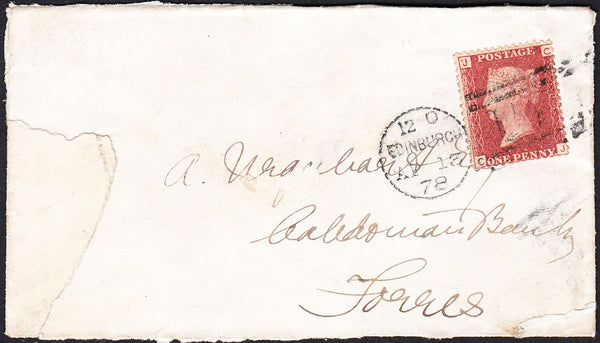 J C
POSTAGE
C J
ONE PENNY
12 O
EDINBURGH
AP 18
78
A. Urquhart Esq
Caledonian Bank
Forres